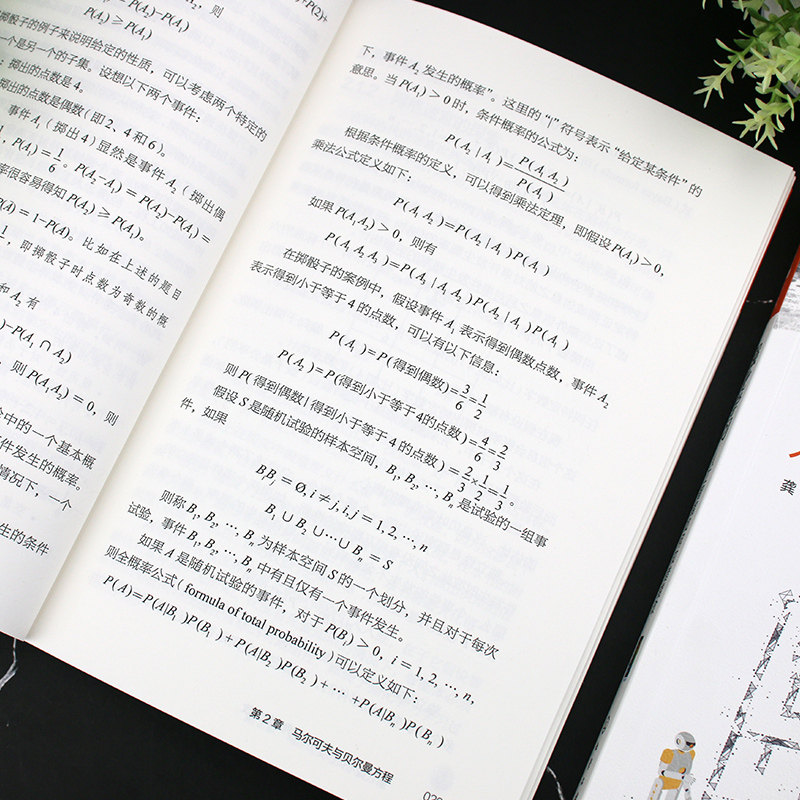 P(A₂)−P(A₁)，则
P(A₂) ⩾ P(A₁)
掷骰子的例子来说明给定的性质，可以考虑两个特定的
一个是另一个的子集。设想以下两个事件：
掷出的点数是4。
掷出的点数是偶数（即2、4和6）。
事件A₁（掷出4）显然是事件A₂（掷出偶
P(A₁)=1/6。P(A₂−A₁)=P(A₂)−P(A₁)=
率很容易得知P(A₂) ⩾ P(A₁)。
P(A)=1−P(A)。比如在上述的题目
，即掷骰子时点数为奇数的概
和A₂有
−P(A₁∩A₂)
，则P(A₁A₂)=0，则
论中的一个基本概
事件发生的概率。
情况下，一个
生的条件
下，事件A₂发生的概率”。这里的“|”符号表示“给定某条件”的
意思。当P(A₁)＞0时，条件概率的公式为：
P(A₂|A₁)=P(A₁A₂)/P(A₁)
根据条件概率的定义，可以得到乘法定理，即假设P(A₁)＞0，
乘法公式定义如下：
P(A₁A₂)=P(A₂|A₁)P(A₁)
如果P(A₁A₂)＞0，则有
P(A₁A₂A₃)=P(A₃|A₁A₂)P(A₂|A₁)P(A₁)
在掷骰子的案例中，假设事件A₁表示得到偶数点数，事件A₂
表示得到小于等于4的点数，可以有以下信息：
P(A₁)=P(得到偶数)=3/6=1/2
P(A₂)=P(得到小于等于4的点数)=4/6=2/3
则P(得到偶数|得到小于等于4的点数)=2/3×1/2=1/3。
假设S是随机试验的样本空间，B₁, B₂, ⋯, Bₙ是试验的一组事
件，如果
BᵢBⱼ=Ø, i≠j, i, j=1, 2, ⋯, n
B₁∪B₂∪⋯∪Bₙ=S
则称B₁, B₂, ⋯, Bₙ为样本空间S的一个划分，并且对于每次
试验，事件B₁, B₂, ⋯, Bₙ中有且仅有一个事件发生。
如果A是随机试验的事件，对于P(Bᵢ)＞0，i=1, 2, ⋯, n,
则全概率公式(formula of total probability)可以定义如下：
P(A)=P(A|B₁)P(B₁)+P(A|B₂)P(B₂)+⋯+P(A|Bₙ)P(Bₙ)
第2章 马尔可夫与贝尔曼方程
龚